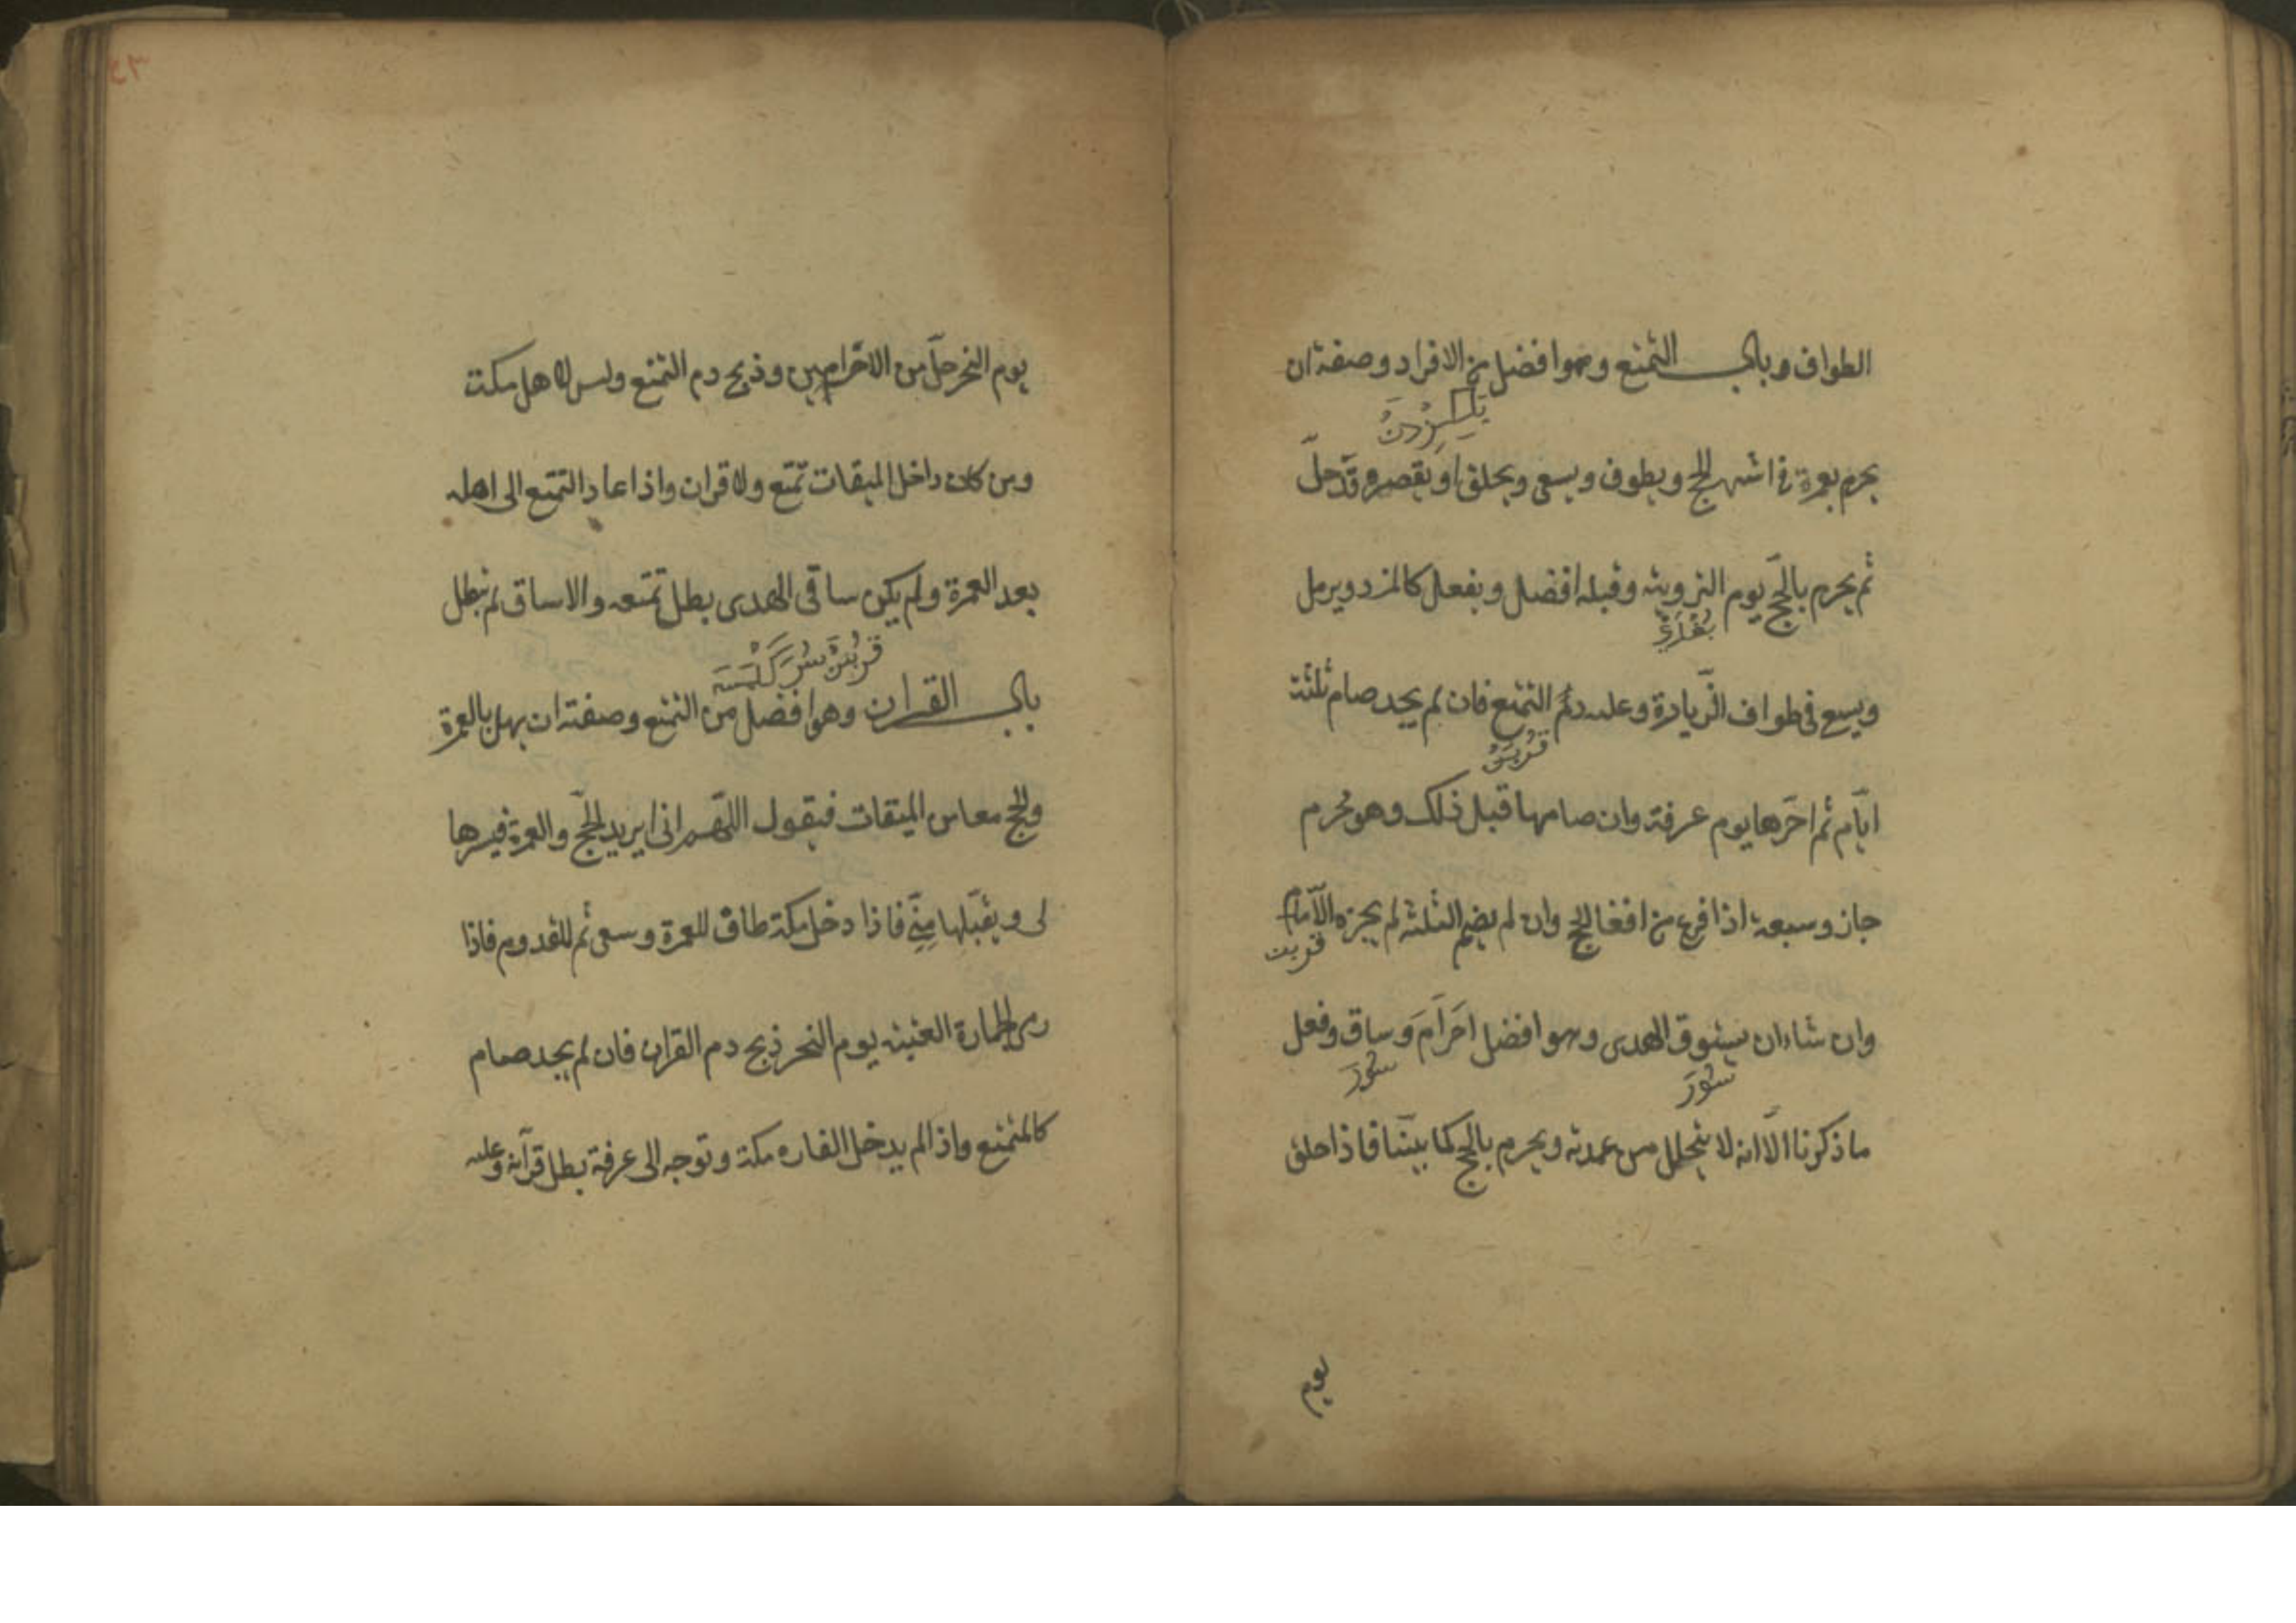 الطواف وباب التمتع وهوا فضل من الافراد وصفته ان
يحرم بعمرة في اشهر الحج ويطوف ويسعى ويحلق او يقصر وقد حلّ
ثم يحرم بالحجّ يوم التروية وقبله افضل ويفعل كالمفرد ويرمل
ويسع فى طواف الزّيارة وعليه دم التمتع فان لم يجد صام ثلثة
ايّام ثم اخرها يوم عرفة وان صامها قبل ذلك وهو محرم
جاز وسبعة اذا فرغ من افعال الحج وان لم يضم الثلثة لم يجزه الّا الدم
قربن
وان شاء ان يسوق الهدى وهوا فضل احرام وساق وفعل
سور
سور
ما ذكرنا الّا انه لا يتحلل من عمرته ويحرم بالحج كما بينّا فاذا حلق
يوم
٣٤
يوم النحر حلّ من الاحرامين وذبح دم التمتع وليس لاهل مكت
ومن كان داخل الميقات تمتع ولا قران واذا عاد التمتع الى اهله
بعد العمرة ولم يكن ساقى الهدى بطل تمتعه والا ساق لم يبطل
باب القران وهوا فضل من التمتع وصفته ان يهل بالعمرة
والحج معا من الميقات فيقول اللّهم انى ايريد الحجّ والعمرة فيسرها
لى ويقبّلها منّى فاذا دخل مكة طاف للعمرة وسعى ثم للقدوم فاذا
رمى الجمارة العقبة يوم النحر ذبح دم القران فان لم يجد صام
كالمتمتع واذا لم يدخل القاره مكة وتوجه الى عرفة بطل قرآنه وعليه